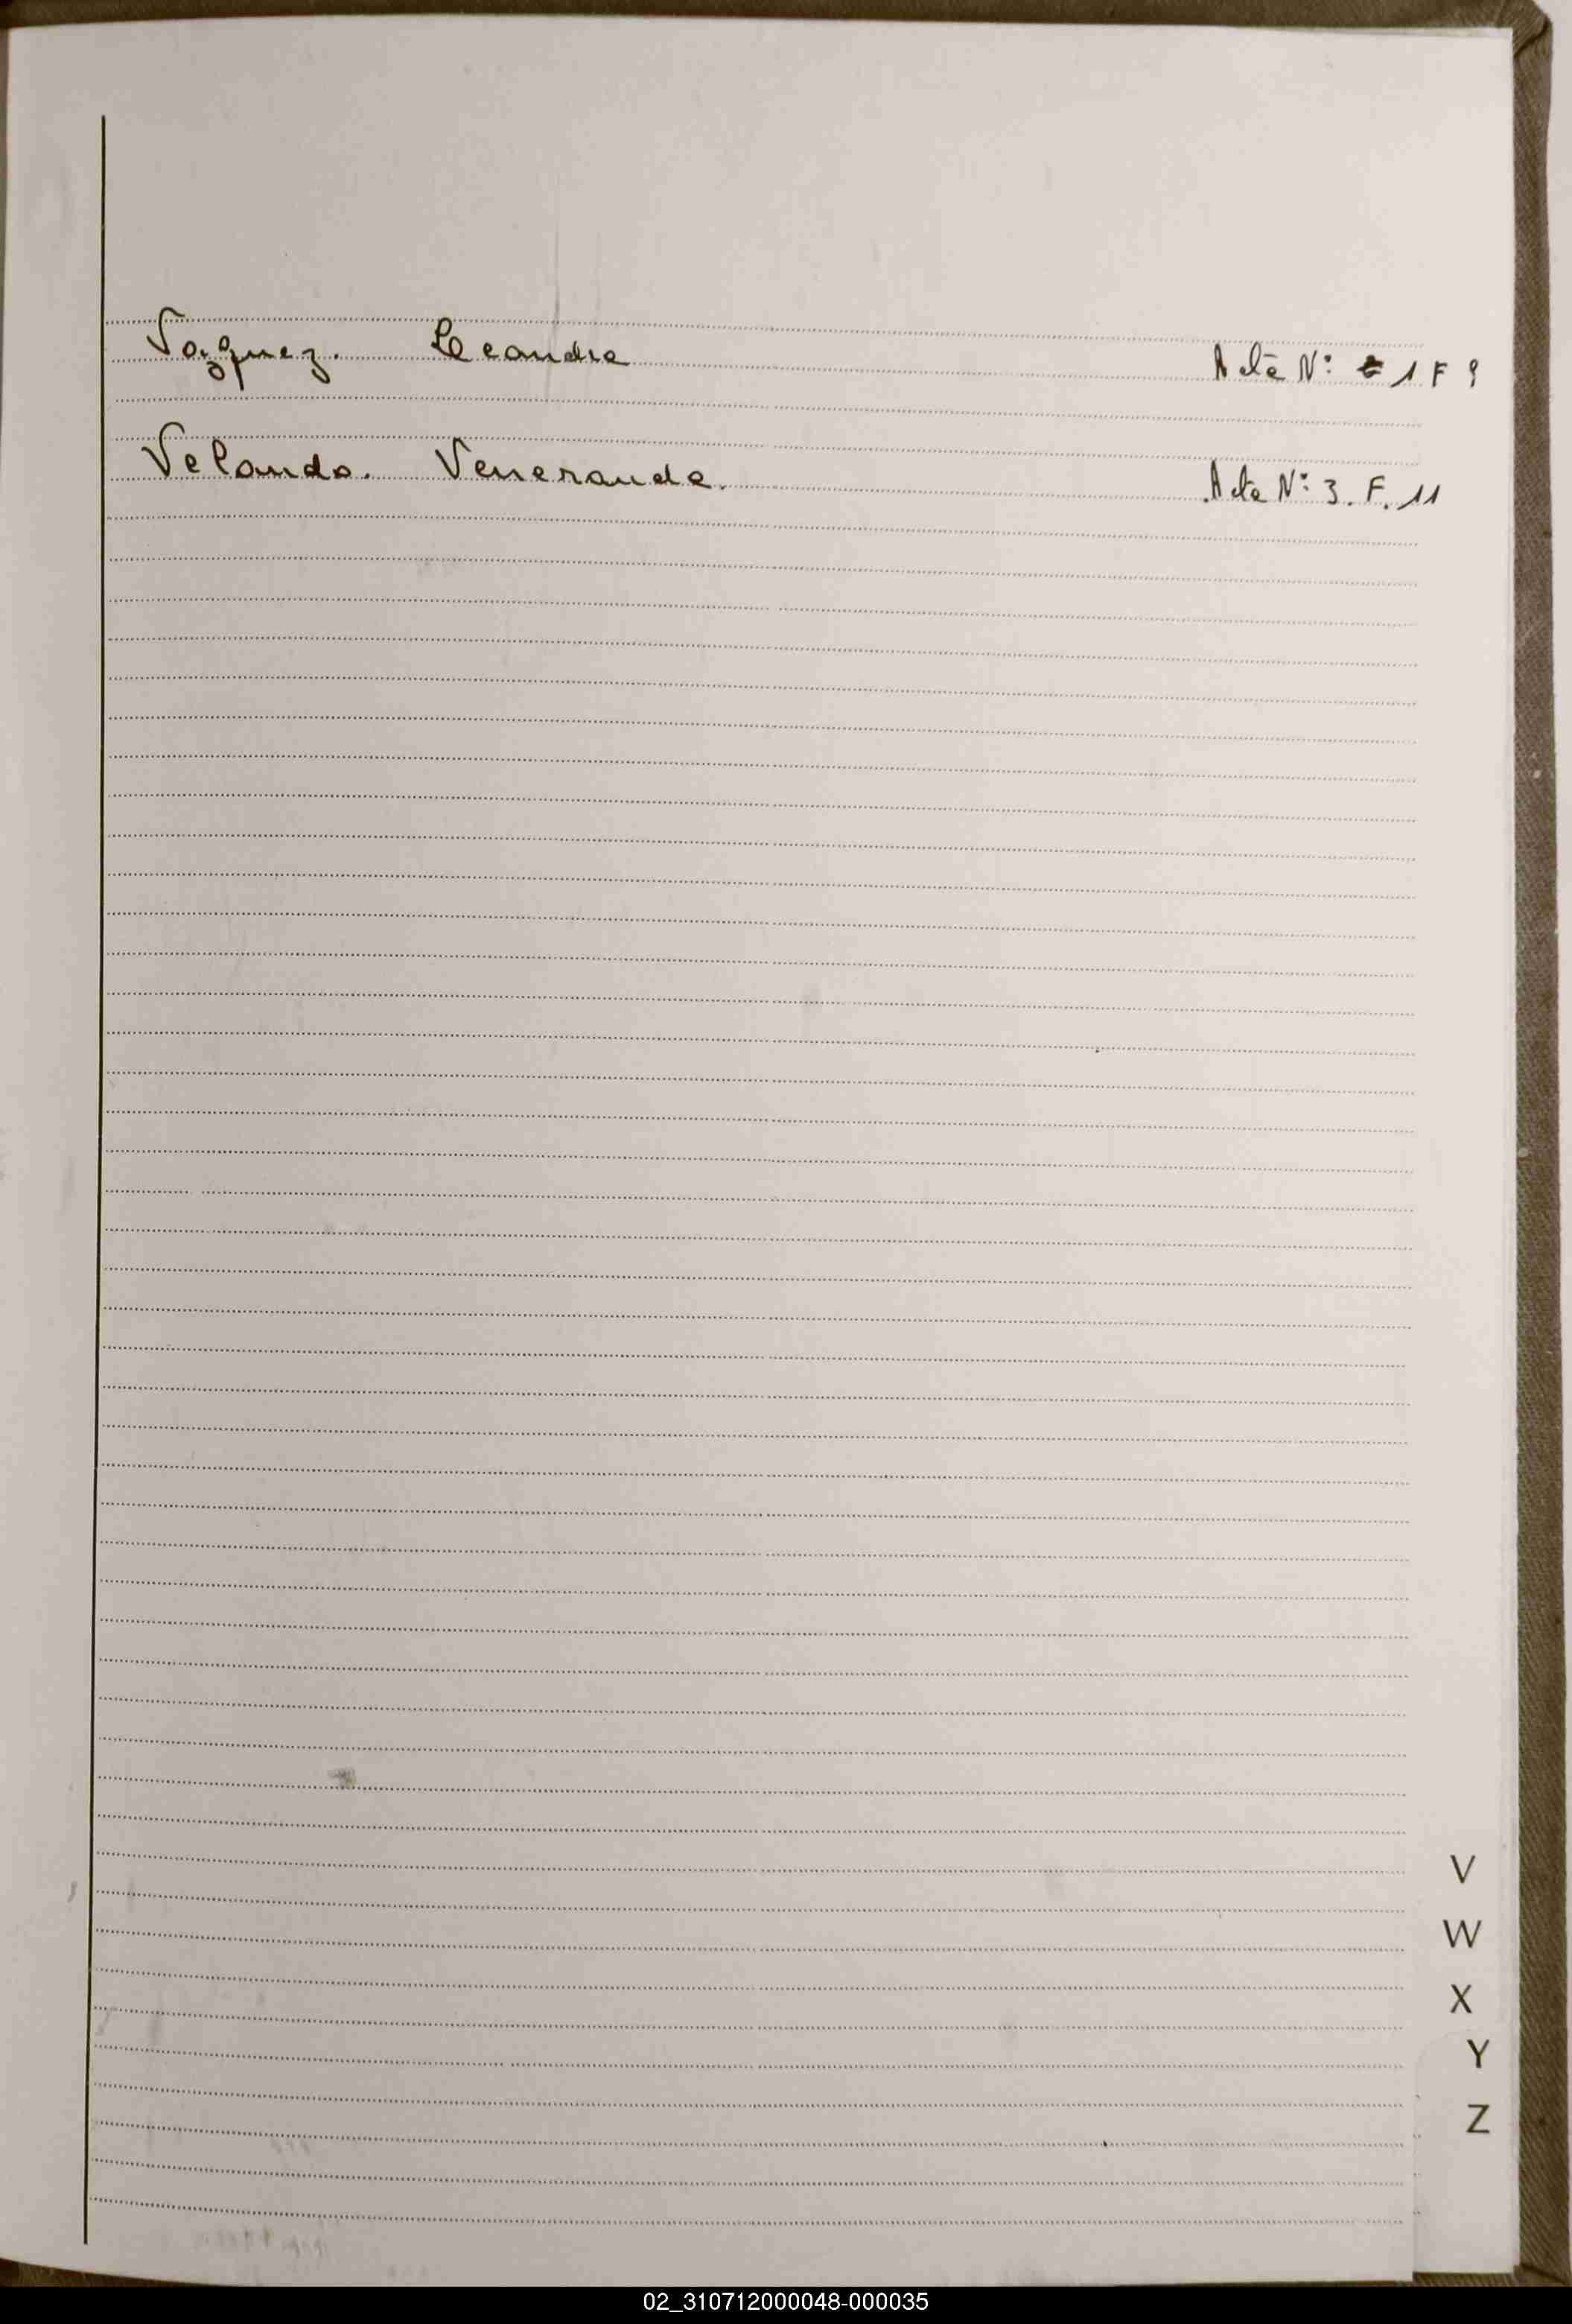 Vazquez. Leandra Acta N: 1 F 9
Velando. Veneranda. Acta N: 3. F. 11
V
W
X
Y
Z
02_310712000048-000035